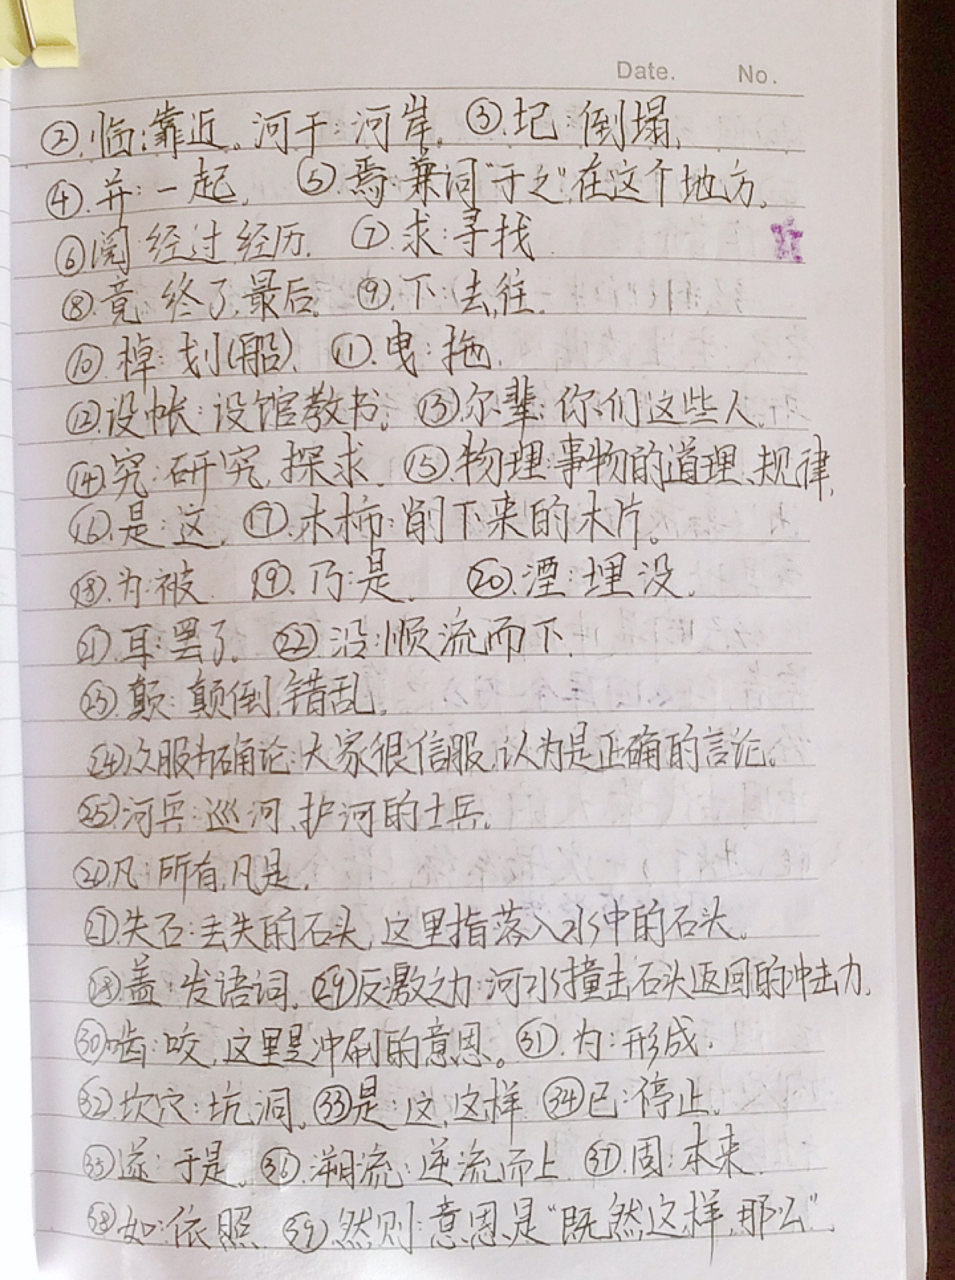 Date. No.
②.临:靠近。河干:河岸。 ③.圮:倒塌.
④.并:一起. ⑤.焉:兼词"于之",在这个地方.
⑥阅:经过,经历. ⑦.求:寻找.
⑧.竟:终了,最后. ⑨.下:去,往.
⑩.棹:划(船). ⑪.曳:拖.
⑫设帐:设馆教书。 ⑬尔辈:你们这些人.
⑭究:研究,探求. ⑮.物理:事物的道理、规律.
⑯.是:这. ⑰.木杮:削下来的木片。
⑱.为:被. ⑲.乃:是. ⑳.湮:埋没.
㉑耳:罢了. ㉒沿:顺流而下.
㉓.颠:颠倒,错乱.
㉔众服为确论:大家很信服,认为是正确的言论。
㉕河兵:巡河、护河的士兵。
㉖凡:所有,凡是.
㉗失石:丢失的石头,这里指落入水中的石头。
㉘盖:发语词. ㉙反激之力:河水撞击石头返回的冲击力.
㉚啮:咬,这里是冲刷的意思。㉛.为:形成.
㉜坎穴:坑洞. ㉝是:这,这样. ㉞已:停止.
㉟遂:于是. ㊱.溯流:逆流而上. ㊲.固:本来.
㊳如:依照. ㊴然则:意思是"既然这样,那么".